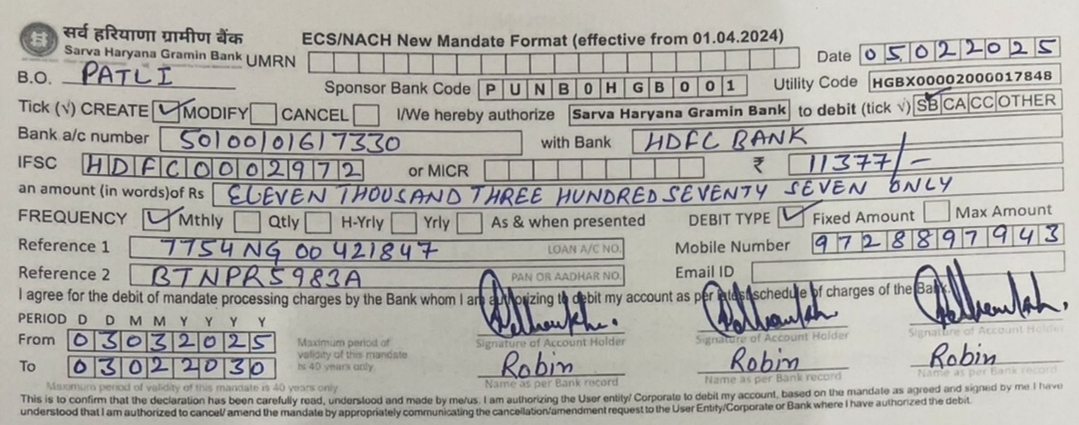 सर्व हरियाणा ग्रामीण बैंक
Sarva Haryana Gramin Bank
ECS/NACH New Mandate Format (effective from 01.04.2024)
UMRN
Date 05022025
B.O. PATLI
Sponsor Bank Code PUNB0HGB001
Utility Code HGBX00002000017848
Tick (√) CREATE ✓ MODIFY CANCEL I/We hereby authorize Sarva Haryana Gramin Bank to debit (tick √) SB CA CC OTHER
Bank a/c number 50100101617330 with Bank HDFC BANK
IFSC HDFC0002972 or MICR ₹ 11377/-
an amount (in words)of Rs ELEVEN THOUSAND THREE HUNDRED SEVENTY SEVEN ONLY
FREQUENCY ✓ Mthly Qtly H-Yrly Yrly As & when presented DEBIT TYPE ✓ Fixed Amount Max Amount
Reference 1 7754NG 00 421847 LOAN A/C NO. Mobile Number 9728897943
Reference 2 BTNPR5983A PAN OR AADHAR NO. Email ID
I agree for the debit of mandate processing charges by the Bank whom I am authorizing to debit my account as per latest schedule of charges of the Bank.
PERIOD D D M M Y Y Y Y
From 03032025
To 03022030
Maximum period of validity of this mandate is 40 years only
Signature of Account Holder Signature of Account Holder Signature of Account Holder
Robin Robin Robin
Name as per Bank record Name as per Bank record Name as per Bank record
Maximum period of validity of this mandate is 40 years only
This is to confirm that the declaration has been carefully read, understood and made by me/us. I am authorizing the User entity/ Corporate to debit my account, based on the mandate as agreed and signed by me I have
understood that I am authorized to cancel/ amend the mandate by appropriately communicating the cancellation/amendment request to the User Entity/Corporate or Bank where I have authorized the debit.